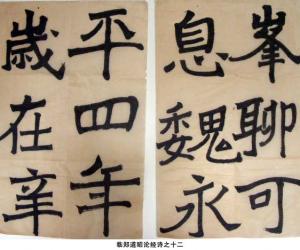 峯聊可
息魏永
平四年
歳在辛
临郑道昭论经诗之十二